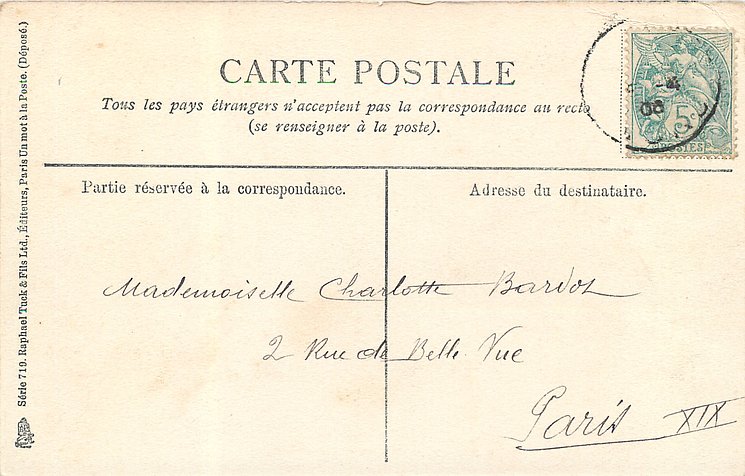 CARTE POSTALE
Tous les pays étrangers n'acceptent pas la correspondance au recto
(se renseigner à la poste).
Partie réservée à la correspondance.
Adresse du destinataire.
Mademoiselle Charlotte Bardot
2 Rue de Belle-Vue
Paris XIX
Série 719. Raphael Tuck & Fils Ltd., Éditeurs, Paris Un mot à la Poste. (Déposé.)
-4
06
5
POSTES